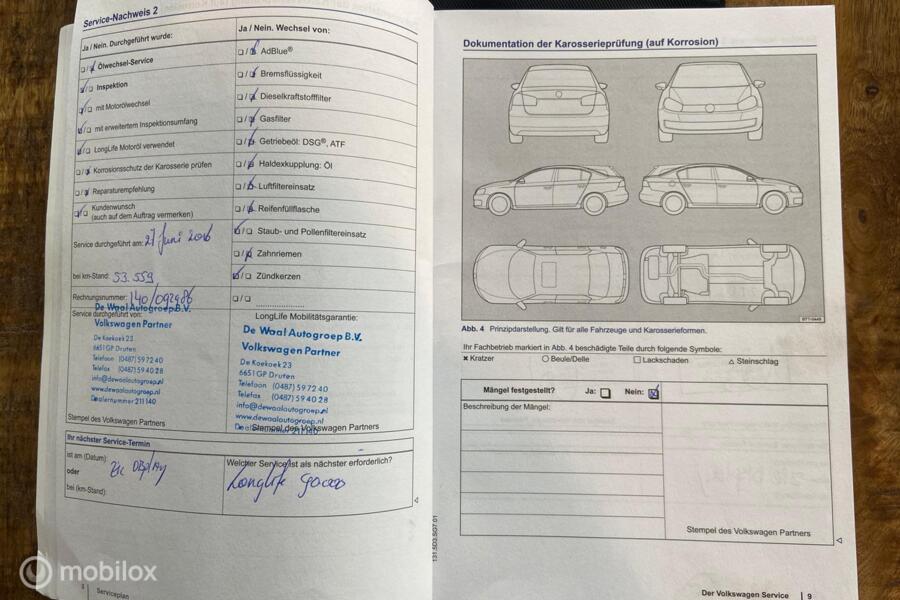 Service-Nachweis 2
Ja / Nein. Durchgeführt wurde:
Ölwechsel-Service
Inspektion
mit Motorölwechsel
mit erweitertem Inspektionsumfang
LongLife Motoröl verwendet
Korrosionsschutz der Karosserie prüfen
Reparaturempfehlung
Kundenwunsch
(auch auf dem Auftrag vermerken)
Service durchgeführt am: 27 Juni 2016
bei km-Stand: 53.559
Rechnungsnummer: 140/092986
Service durchgeführt von:
De Waal Autogroep B.V.
Volkswagen Partner
De Koekoek 23
6651 GP Druten
Telefoon (0487) 59 72 40
Telefax (0487) 59 40 28
info@dewaalautogroep.nl
www.dewaalautogroep.nl
Dealernummer 211 140
Stempel des Volkswagen Partners
Ja / Nein. Wechsel von:
AdBlue®
Bremsflüssigkeit
Dieselkraftstofffilter
Gasfilter
Getriebeöl: DSG®, ATF
Haldexkupplung: Öl
Luftfiltereinsatz
Reifenfüllflasche
Staub- und Pollenfiltereinsatz
Zahnriemen
Zündkerzen
LongLife Mobilitätsgarantie:
De Waal Autogroep B.V.
Volkswagen Partner
De Koekoek 23
6651 GP Druten
Telefoon (0487) 59 72 40
Telefax (0487) 59 40 28
info@dewaalautogroep.nl
www.dewaalautogroep.nl
Dealernummer 211 140
Stempel des Volkswagen Partners
Ihr nächster Service-Termin
ist am (Datum):
oder
bei (km-Stand):
Welcher Service ist als nächster erforderlich?
Longlife 90000
8 Serviceplan
131.5D3.SG7.01
Dokumentation der Karosserieprüfung (auf Korrosion)
Abb. 4 Prinzipdarstellung. Gilt für alle Fahrzeuge und Karosserieformen.
Ihr Fachbetrieb markiert in Abb. 4 beschädigte Teile durch folgende Symbole:
Kratzer Beule/Delle Lackschaden Steinschlag
Mängel festgestellt? Ja: Nein:
Beschreibung der Mängel:
Stempel des Volkswagen Partners
Der Volkswagen Service 9
mobilox